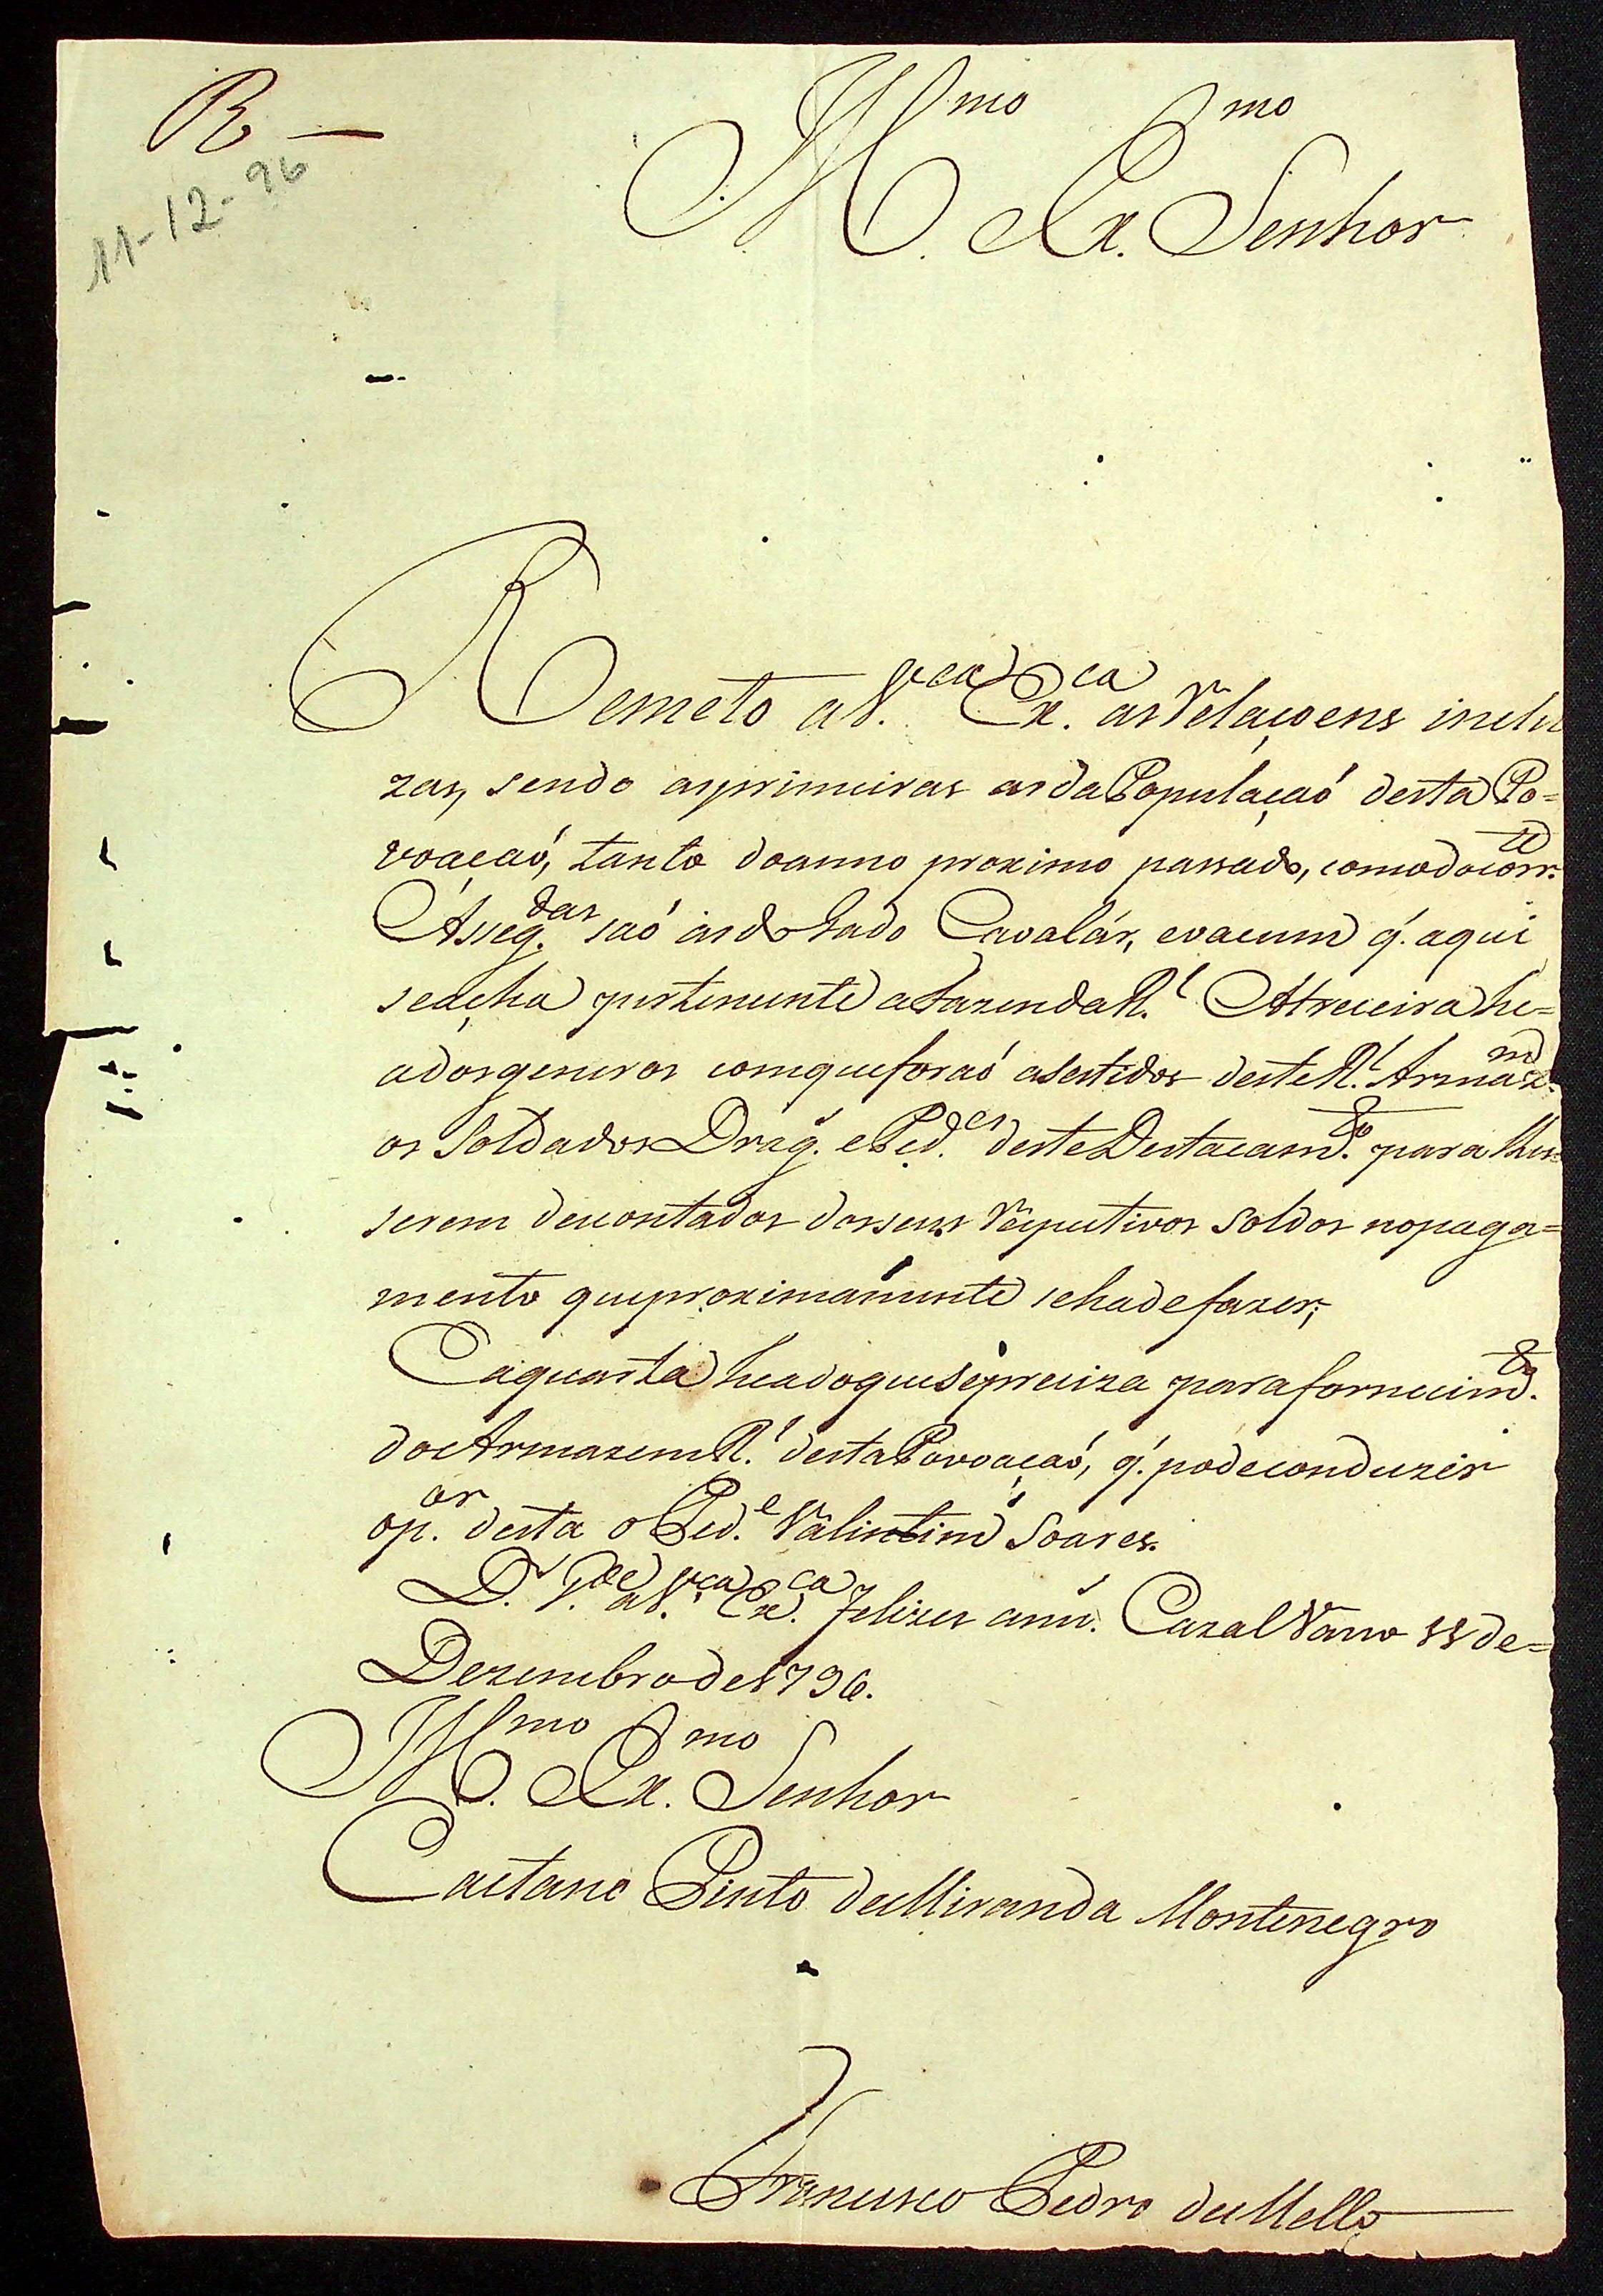 R. —
11-12-96
Ill.mo Ex.mo Senhor
Remeto a V.ca Ex.ca as Relaçoens inclu
zas, sendo as primeiras as da Populaçaó desta Po=
voaçaó, tanto do anno proximo passado, como do corr.te
As seg.das saó as do Gado Cavalár, e vacum q.' aqui
se acha pertencente a Fazenda R.l A treceira he=
a dos generos com que foraó asestidos deste R.l Armaz.m
os Soldados Drag. e Ped.es deste Destacam.to para lhes
serem descontados dos seus respectivos Soldos no paga=
mento que proximamente se ha de fazer;
E a quarta he a do que se preciza para fornecim.to
do Armazem R.l desta Povoaçaó, q.' pode conduzir
o p.or desta o Ped.e Valintim Soares.
D.s g.de a V.ca Ex.ca felizes ann. Cazal Vasco 11 de=
Dezembro de 1796.
Ill.mo Ex.mo Senhor
Caetano Pinto de Miranda Montenegro
Francisco Pedro de Mello